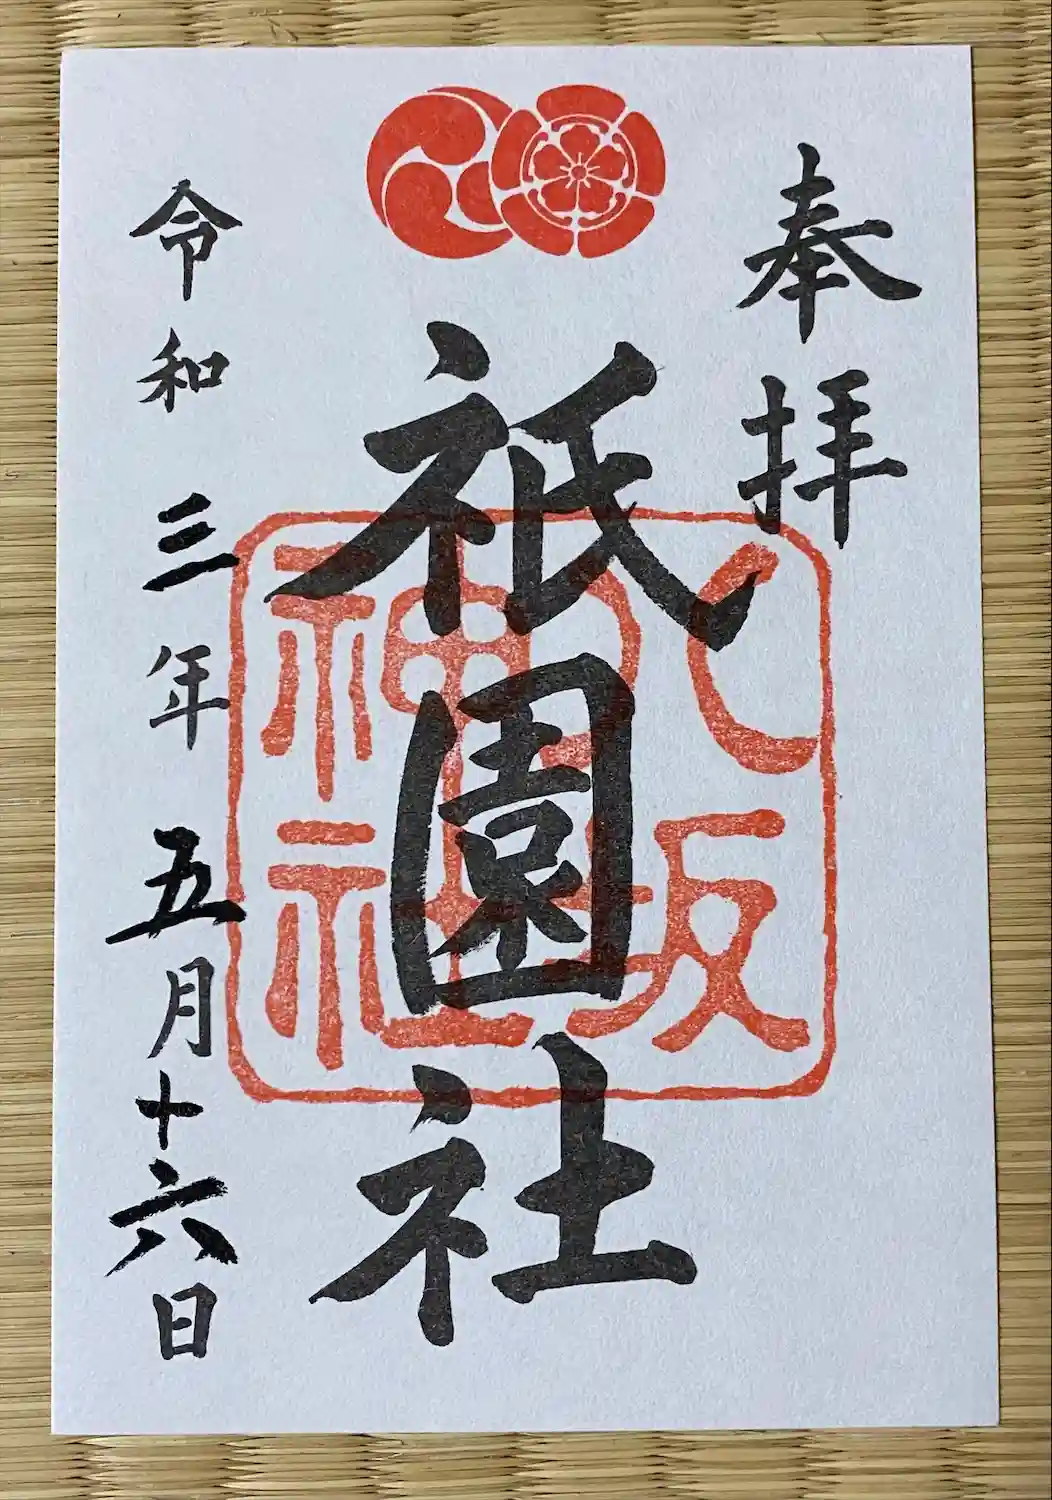 奉拝
祇園社
八坂
神社
令和三年五月十六日